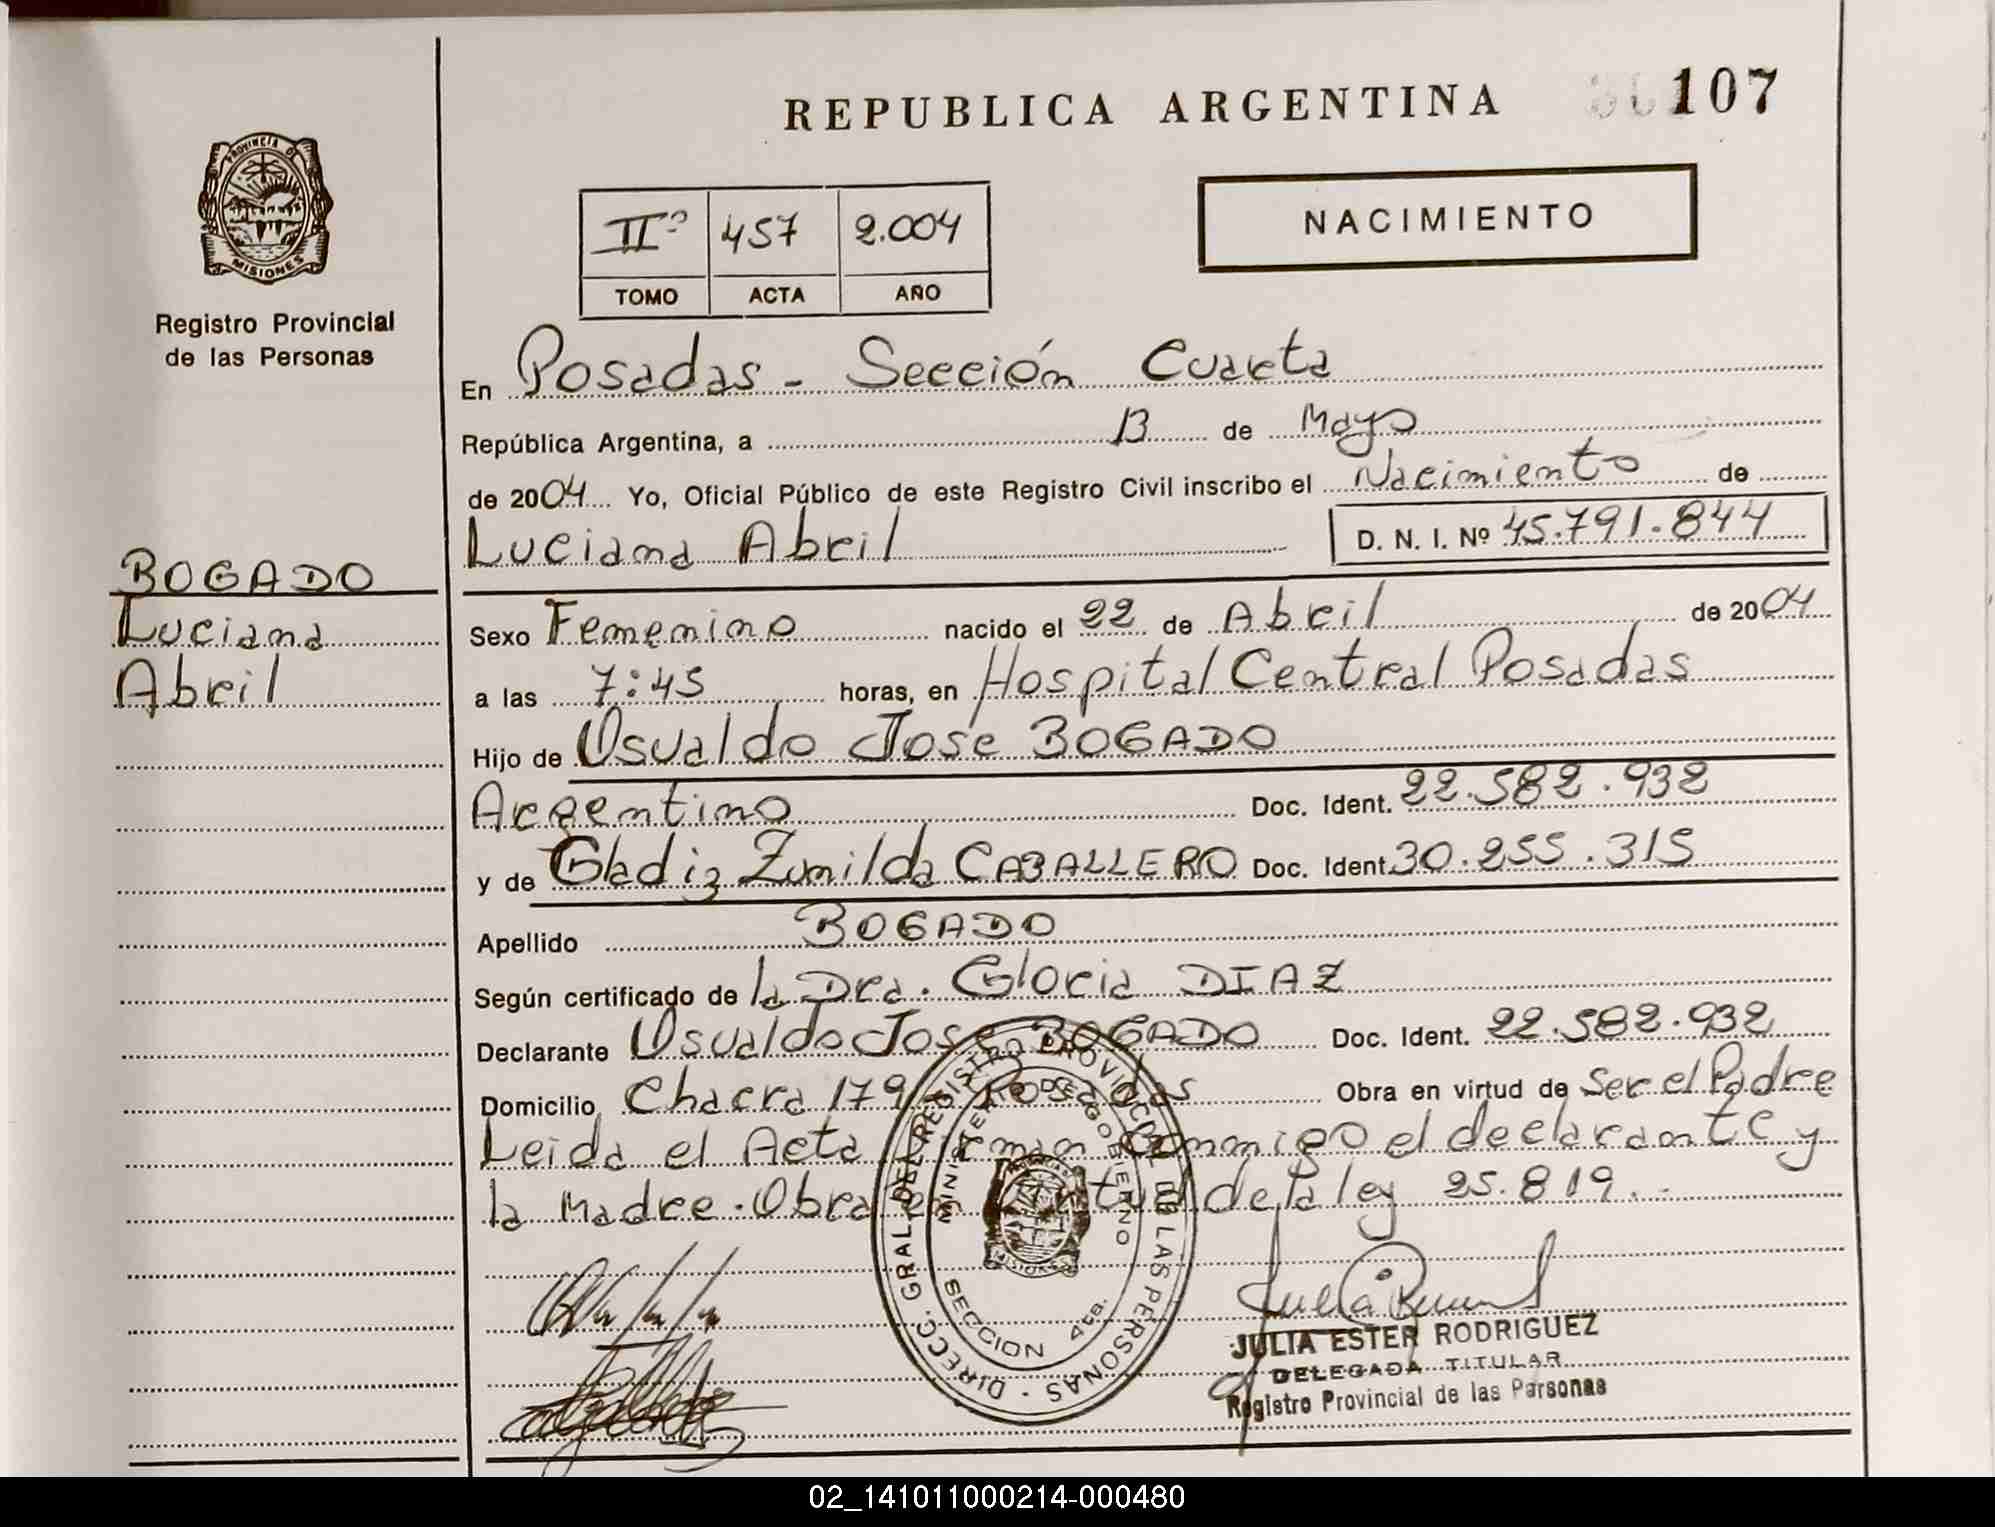 REPUBLICA ARGENTINA
107
PROVINCIA DE
MISIONES
Registro Provincial
de las Personas
IIº 457 2.004
TOMO ACTA AÑO
NACIMIENTO
En Posadas - Sección Cuarta
República Argentina, a 13 de Mayo
de 2004 Yo, Oficial Público de este Registro Civil inscribo el Nacimiento de
Luciana Abril
D. N. I. Nº 45.791.844
BOGADO
Luciana
Abril
Sexo Femenino nacido el 22 de Abril de 2004
a las 7:45 horas, en Hospital Central Posadas
Hijo de Osualdo Jose BOGADO
Argentino Doc. Ident. 22.582.932
y de Gladiz Zunilda CABALLERO Doc. Ident. 30.255.315
Apellido BOGADO
Según certificado de la Dra. Gloria DIAZ
Declarante Osualdo Jose BOGADO Doc. Ident. 22.582.932
Domicilio Chacra 179 Posadas Obra en virtud de Ser el Padre
Leida el Acta firman conmigo el declarante y
la Madre. Obra en virtud de la ley 25.819.-
DIRECC. GRAL. DEL REGISTRO PROVINCIAL DE LAS PERSONAS
MINISTERIO DE GOBIERNO
SECCION 4ta.
JULIA ESTER RODRIGUEZ
DELEGADA TITULAR
Registro Provincial de las Personas
02_141011000214-000480